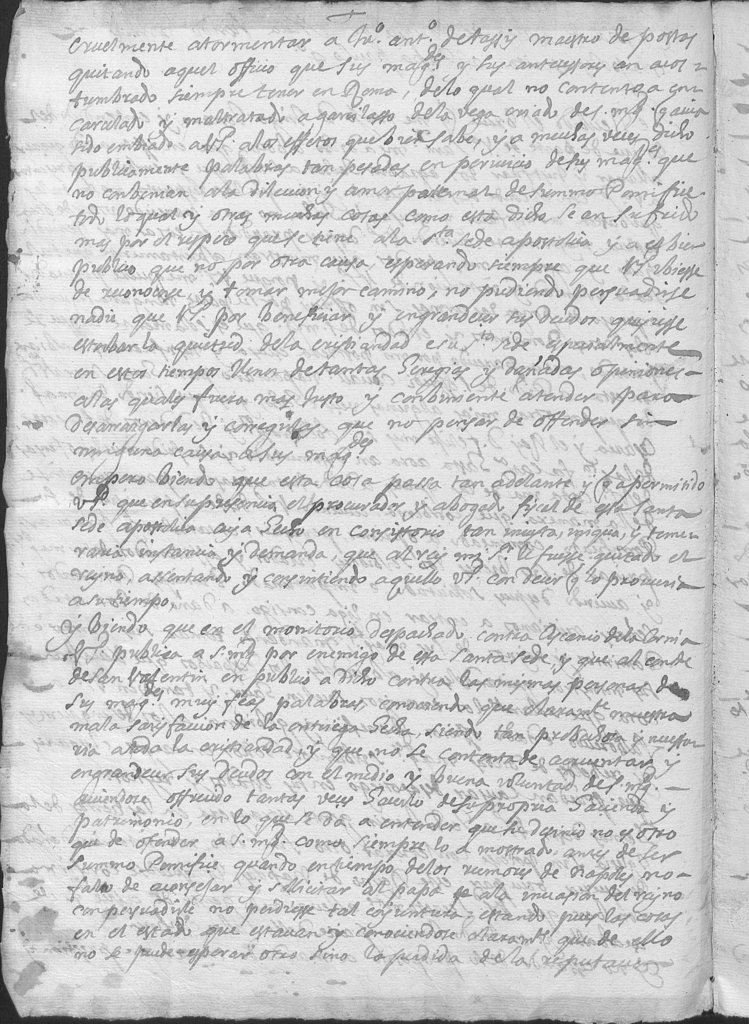 cruelmente atormentar a Juº antº de tassis maestro de postas
quitando aquel officio que sus magdes y sus antecessores an acos-
tumbrado siempre tener en Roma, de lo qual no contento a en-
carcelado y maltratado a garcilasso de la vega criado de s. mgd (q avia
sido embiado a V.S. a los effetos que bien sabe, y a muchas veces dicho
publicamente palabras tan pesadas en perjuicio de sus magdes que
no conbenian a la dileccion y amor paternal de summo Pontifice
todo lo qual y otras muchas cosas como esta dicho se an sufrido
mas por el respeto que se tiene a la sta sede apostolica y a el bien
publico que no por otra causa esperando siempre que V.S. ubiesse
de reconocerse y tomar mejor camino, no pudiendo persuadirse
nadie que V.S. por beneficiar y engrandecer sus deudos quisiesse
estorbar la quietud de la cristiandad e su sta sede especialmente
en estos tiempos llenos de tantas heregias y dañadas opiniones
a las quales fuera mas justo y conbiniente atender para
desarraygarlas y corregirlas, que no pensar de offender sin
ninguna causa a sus magdes
empero biendo que esta cosa passa tan adelante y (q a permitido
V.S. que en su presencia el procurador y abogado fiscal de essa santa
sede apostolica aya hecho en consistorio tan injusta, iniqua, y teme-
raria instancia y demanda, que al rey mi sr le fuesse quitado el
reyno, assentando y consintiendo a aquello V.S. con decir (q lo proveeria
a su tiempo
y biendo que en el monitorio despachado contra Ascanio de la Cornia
V.S. publica a s. mgd por enemigo de essa santa sede y que al conde
de San Valentin en publico a dicho contra las mismas personas de
sus magdes muy feas palabras conociendo que claramte muestra
mala satisfacion de la entrega hecha, siendo tan probechosa y necessa-
ria a toda la cristiandad, y que no se contenta de acrecentar y
engrandecer sus deudos con el medio y buena voluntad de s. mgd
aviendose offrecido tantas veces hacerlo de su propia hacienda y
patrimonio, en lo que se da a entender que su designio no es otro
que de offender a s. mgd como siempre lo a mostrado, antes de ser
summo Pontifice quando en tiempo de los rumores de Napoles no
falto de aconsejar y solicitar al papa a la invasion del reyno
con persuadirle no perdiesse tal coyuntura, estando pues las cosas
en el estado que estavan y conociendose claramte que de ello
no se puede esperar otro sino la perdida de la reputacion